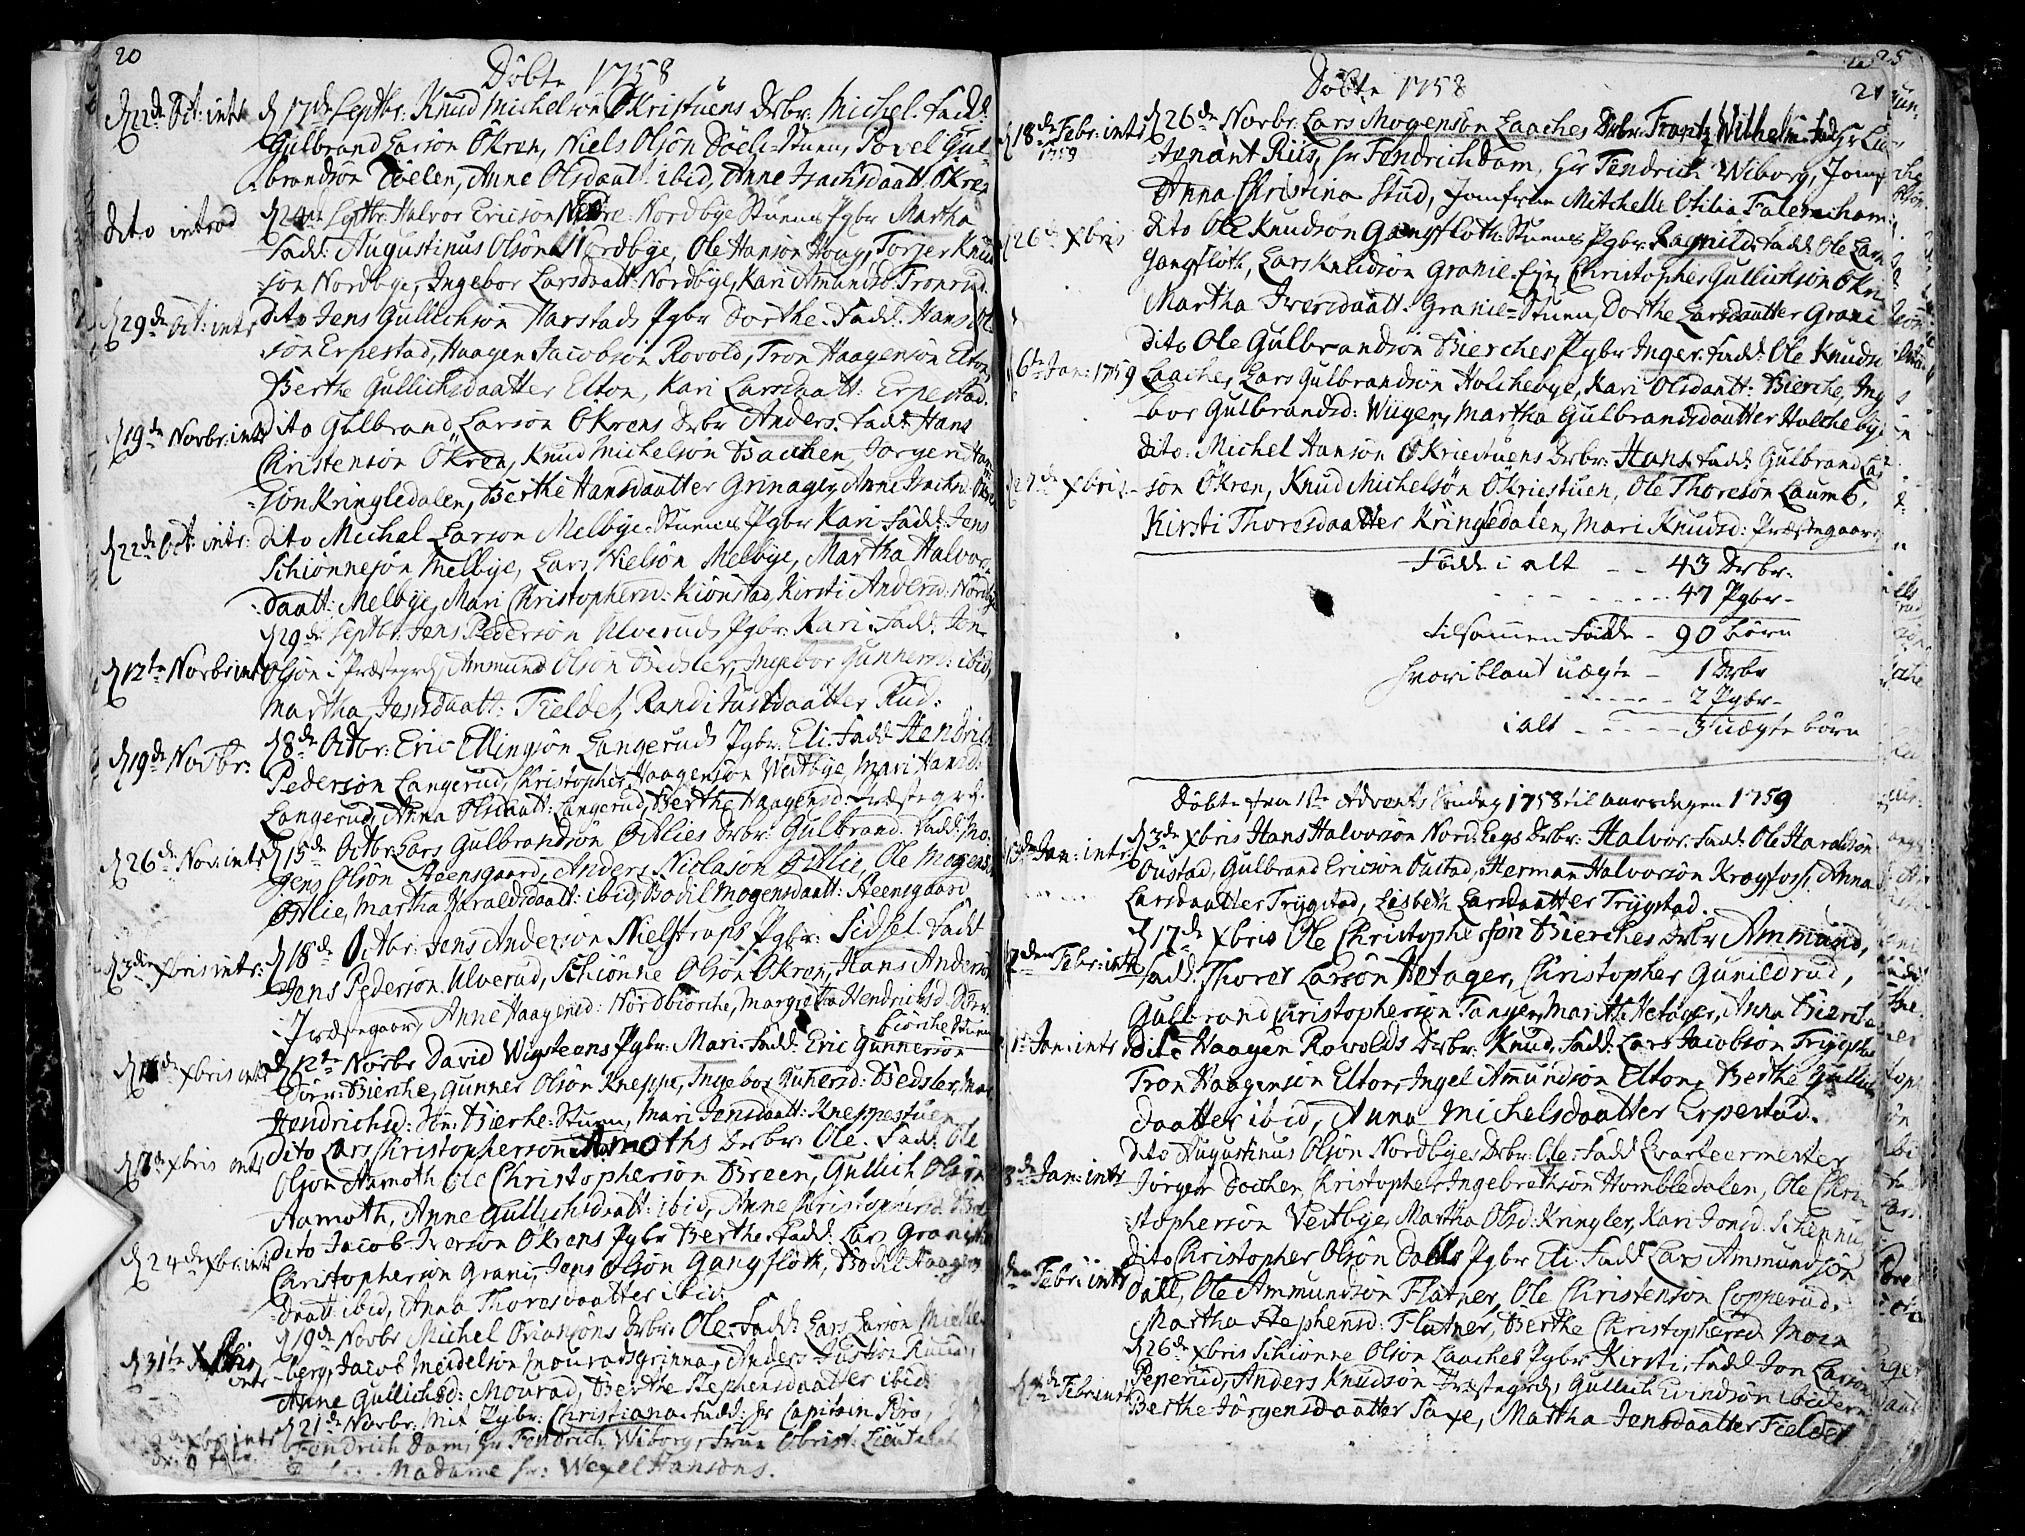 20
Döbte 1758
d 22de Oct: intr
d 17de Septbr: Knud Michelsön Ökristuens Drbr: Michel. Fadd:
Gulbrand Larsön Ökren, Niels Olsön Döeli-Stuen, Povel Gul-
brandsön Döelen, Anne Olsdaatt: ibid, Anne Isachsdaatt: Ökren
dito introd
d 24de Septbr: Halvor Ericson Nedre-Nordbye Stuens Pgbr Martha
Fadd: Augustinus Olsön Nordbye, Ole Hanson Houg, Torjer Knud
sön Nordbye, Ingebor Larsdaatt: Nordbye, Kari Amundsd: Tronrud.
d 29de Oct: intr
dito Jens Gullichsön Harstads Pgbr Dorthe. Fadd: Hans Ol
sön Erpestad, Haagen Jacobsön Rovold, Tron Haagensön Elton,
Berthe Gullichsdaatter Elton, Kari Larsdaatt: Erpestad.
d 19de Novbr: intr
dito Gulbrand Larsön Ökrens Drbr Anders. Fadd: Hans
Christensön Ökren, Knud Michelsön Bachen, Jörgen Han
sön Kringledalen, Berthe Hansdaatter Grinager, Anne Isachsd: Ökren
d 22de Oct: intr:
dito Michel Larson Melbye-Stuens Pgbr Kari. Fadd: Jens
Schiönnesön Melbye, Lars Nielsön Melbye, Martha Halvors
daatt: Melbye, Mari Christophersd: Kiönstad, Kirsti Andersd: Nordbye
d 29de Septbr: Jens Pedersön Ulveruds Pgbr: Kari. Fadd: Jon
d 12te Novbr intr
Olsön i Præstegrd, Ammund Olsön Bedsler, Ingebor Gunnersd: ibid,
Martha Jensdaatt: Fieldet, Randi Justdaatter Rud.
d 19de Novbr:
d 8de Octbr: Eric Ellingsön Langeruds Pgbr: Eli. Fadd: Hendrich
Pedersön Langerud, Christopher Haagensön Westbye, Mari Hansd:
Langerud, Anna Olsdaatt: Langerud, Berthe Haagensd: Præstegrd.
d 26de Nov: intr
d 15de Octbr Lars Gulbrandsön Östlies Drbr: Gulbrand. Fadd: Mo-
gens Olson Steensgaard, Anders Niclason Östlie, Ole Mogens
Östlie, Martha Haraldsdaatt: ibid, Bodil Mogensdaatt: Steensgaard
d 3die Xbris intr:
d 18de Octbr: Jens Andersön Nielstraps Pgbr: Sidsel. Fadd
Jens Pedersön Ulverud, Schiönne Olsön Ökren, Hans Anderson
Præstegaard, Anne Haagensd: Nordbiörche, Margretha Hendrichsd: Dörr-
biörche-Stuen
d 10de Xbris intr
d 12te Novbr David Wigsteens Pgbr: Mari. Fadd: Eric Gunnersön
Dörr-Bierche, Gunner Olsön Kneppe, Ingebor Gunersd: Bedsler, Mari
Hendrichsd: Sön: Bierke-Stuen, Mari Jensdaatt: Kneppestuen
d 17de Xbris intr
dito Lars Christophersön Aamoths Drbr: Ole. Fadd: Ole
Olsön Aamoth, Ole Christophersön Breen, Gullich Olsön
Aamoth, Anne Gullichsdaatt: ibid, Anne Christophersd: Bre
d 24de Xbr: intr
dito Jacob Iverson Ökrens Pgbr Berthe. Fadd: Lars Granie
Christophersön Grani, Jens Olsön Gangflöth, Bodil Haagens
daatt ibid, Anna Thoresdaatter ibid.
d 31te Xbris
intr
d 19de Novbr Michel Öriansöns Drbr: Ole. Fadd: Lars Larsön Michle
berg, Jacob Meidelson Mouradsgrinna, Anders Justsön Ruud,
Anne Gullichsd: Mourad, Berthe Stephensdaatter ibid
d 21de Novbr: Pgbr: Christiana. Fadd: Hr Capitain
Fendrich Dam, Hr Fendrich Wiborg, Frue Obrist Lieutenant
Madame Hr: Wexel Hansöns.
25
21
Döbte 1758
d 18de Febr: intr
1759
d 26de Novbr: Lars Mogensön Laaches Drbr: Frantz Wilhelm. Fad: Hr Lieu
tenant Riis, Hr Fendrich Dam, Hr Fendrich Wiborg, Jomf
Anna Christina Stud, Jomfrue Mitchelle Otilia Falencham:
26de Xbris
dito Ole Knudsön Gangflöth-Stuens Pgbr: Ragnild. Fadd: Ole Lars
Gangflöth, Lars Knudsön Granie-Eje, Christopher Gullichsön Ökre
Martha Iversdaatt: Granie-Stuen, Dorthe Larsdaatter Grani
6te Jan: 1759
dito Ole Gulbrandsön Bierches Pgbr Inger. Fadd: Ole Knuds
Laache, Lars Gulbrandsön Holchebye, Kari Olsdaatt: Bierche, Inge
bor Gulbrandsd: Wüger, Martha Gulbrandsdaatter Holchebye
27de Xbris
dito: Michel Hanson Ökriestuens Drbr: Hans. Fadd: Gulbrand Lar
sön Ökren, Knud Michelsön Ökriestuen, Ole Thoresön Laumb,
Kirsti Thoresdaatter Kringledalen, Mari Knudsd: Præstegaard
Födde i alt - - 43 Drbr:
- - - - - - 47 Pgbr-
tilsammen Födde - 90 börn
hvoriblant uægte - 1 Drbr
- - - - - 2 Pgbr-
i alt - - - - - 3 uægte börn
Döbte fra 1ste Advents Söndag 1758 til aarsdagen 1759
13de Jan: intr:
d 3de Xbris Hans Halvorsön Nord: Eegs Drbr: Halvor. Fadd: Ole Haraldsön
Oustad, Gulbrand Ericsön Oustad, Herman Halvorsön Krogfoss, Anna
Larsdaatter Trygstad, Lisbeth Larsdaatter Trygstad.
2den Febr: intr
d 17de Xbris Ole Christophersön Bierches Drbr Ammund,
Fadd: Thorer Larsön Hetager, Christopher Gunildrud,
Gulbrand Christophersön Tangen, Marith Hetager, Anna Bierche
1te Jan: intr
dito Haagen Rovolds Drbr: Knud. Fadd: Lars Jacobsön Trygstad
Tron Haagensön Elton, Ingel Amundsön Elton, Berthe Gullichs
daatter ibid, Anna Michelsdaatter Erpestad.
8de Jan: intr
dito Augustinus Olsön Nordbyes Drbr: Ole. Fadd Qvarteermester
Jörgen Docher, Christopher Ingebrethsön Hombledalen, Ole Chri
stophersön Vestbye, Martha Olsd: Kringler, Kari Jonsd: Schennu
den Febr: intr
dito Christopher Olsön Dalls Pgbr Eli. Fadd Lars Ammundsön
Dall, Ole Ammundsön Flatner, Ole Christensön Copperud.
Martha Stephensd: Flatner, Berthe Christophersd: Moen
d 4de Febr: intr
d 26de Xbris Schiönne Olsön Laaches Pgbr Kirsti. Fadd Jon Larsön
Peperud, Anders Knudsön Præstegrd, Gullich Evindsön ibidem
Berthe Jörgensdaatter Saxe, Martha Jensdaatter Fieldet